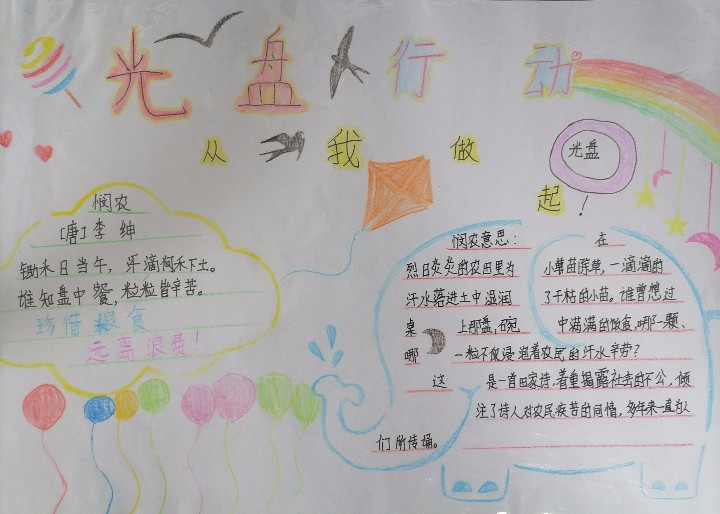 光盘行动
从我做起！
光盘
悯农
[唐]李绅
锄禾日当午，汗滴何禾下土。
谁知盘中餐，粒粒皆辛苦。
珍惜粮食
远离浪费！
悯农意思： 在
烈日炎炎的农田里为 小草苗除草，一滴滴的
汗水落进土中湿润 了干枯的小苗。谁曾想过
桌 上那盘，碗 中满满的饭食，哪一颗、
哪 一粒不似浸泡着农民的汗水辛劳？
这 是一首田家诗，着重揭露社会的不公，倾
注了诗人对农民疾苦的同情，多年来一直为人
们所传诵。